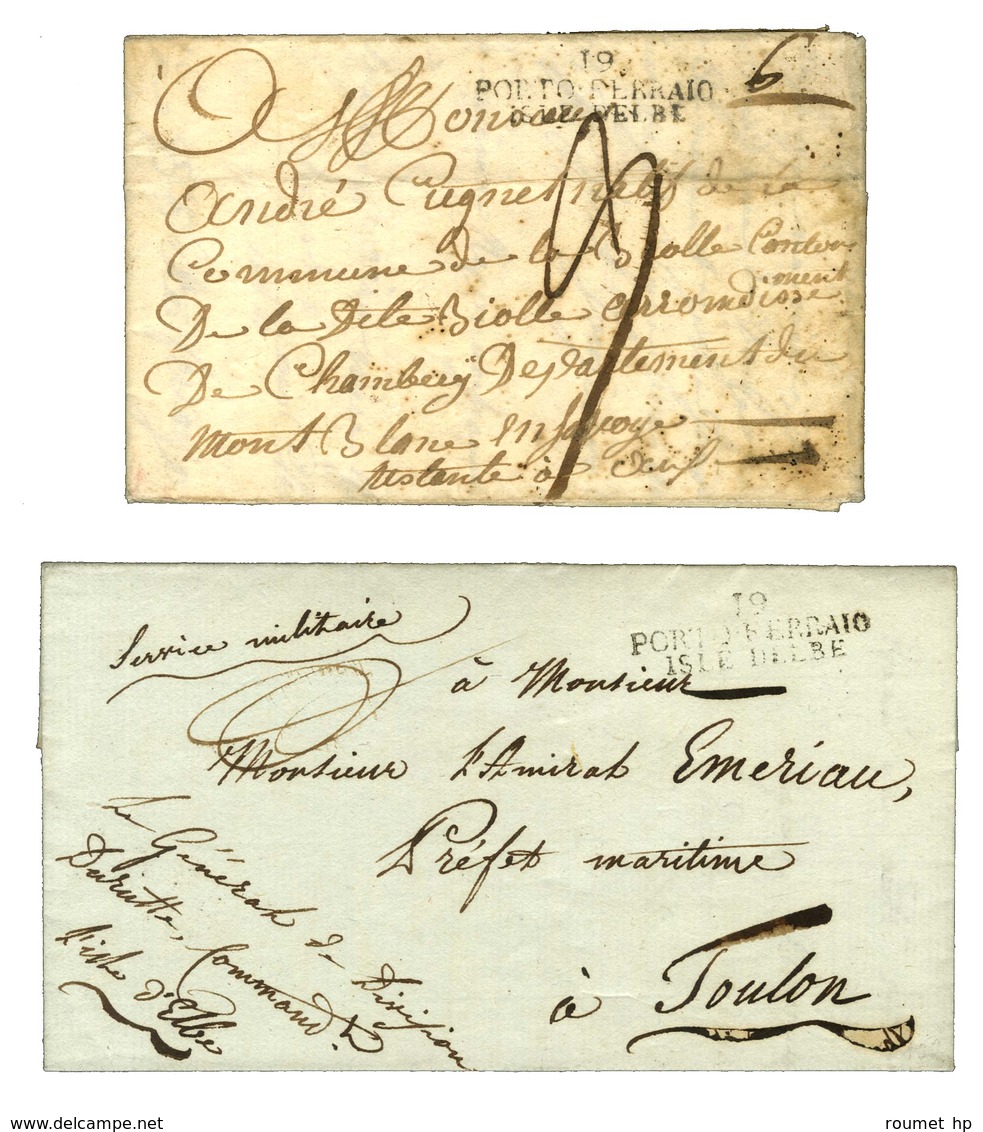 19
PORTO-FERRAIO
ISLE DELBE
6
A Monsieur
André Cugnet natif de la
Commune de la Biolle Canton
De la Dite Biolle arrondisse
ment
De Chambery Departement du
mont Blanc en Savoye
restante à
9
19
PORTO-FERRAIO
ISLE DELBE
Service militaire
à Monsieur
Monsieur l'Amiral Emeriau,
Préfet maritime
à Toulon
Le Général de Division
Durutte, Command.t
l'isle d'Elbe
www.delcampe.net
roumet hp